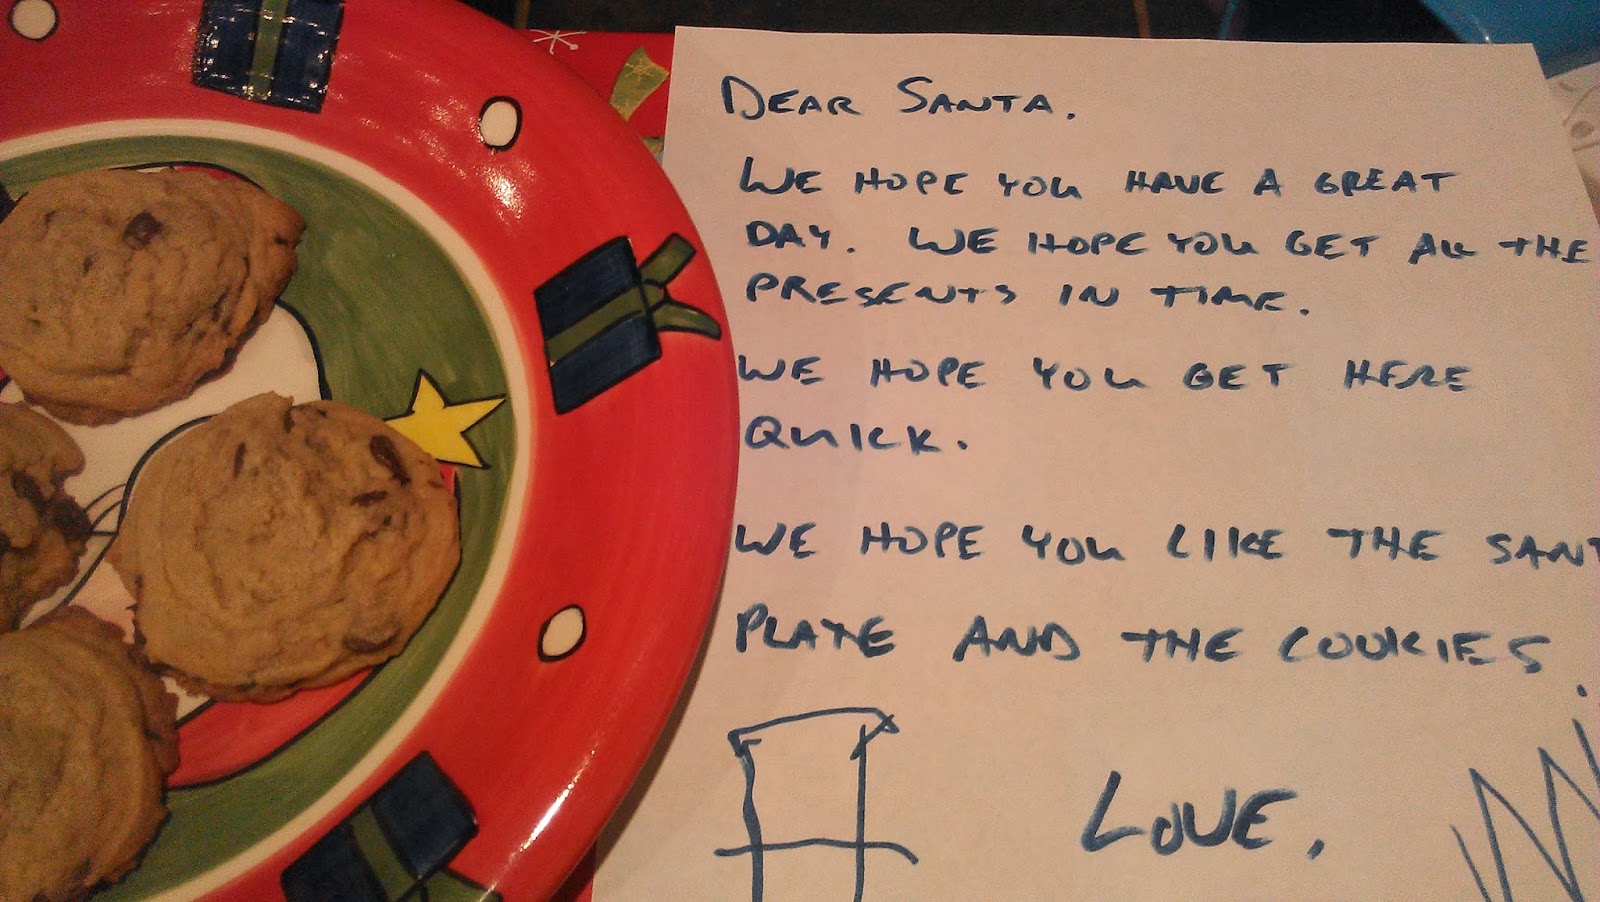 DEAR SANTA.
WE HOPE YOU HAVE A GREAT
DAY. WE HOPE YOU GET ALL THE
PRESENTS IN TIME.
WE HOPE YOU GET HERE
QUICK.
WE HOPE YOU LIKE THE SANT
PLATE AND THE COOKIES.
LOVE,